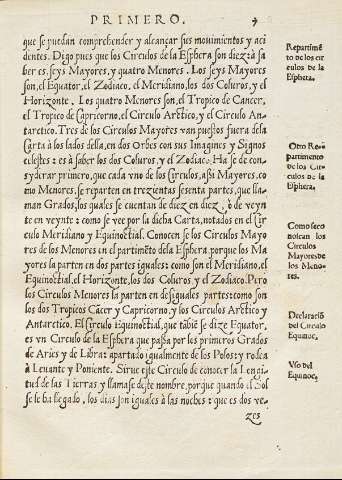 PRIMERO. 7
que se puedan comprehender y alcançar sus movimientos y aci
dentes. Digo pues que los Circulos de la Esphera son diez: à sa
ber es, seys Mayores, y quatro Menores. Los seys Mayores
son, el Equator, el Zodiaco, el Meridiano, los dos Coluros, y el
Horizonte. Los quatro Menores son, el Tropico de Cancer,
el Tropico de Capricorno, el Circulo Arctico, y el Circulo An-
tarctico. Tres de los Circulos Mayores van puestos fuera dela
Carta à los lados della, en dos Orbes con sus Imagines y Signos
celestes: es à saber los dos Coluros, y el Zodiaco. Ha se de con-
syderar primero, que cada vno de los Circulos, assi Mayores, co
mo Menores, se reparten en trezientas sesenta partes, que lla-
man Grados, los quales se cuentan de diez en diez, ò de veyn
te en veynte: como se vee por la dicha Carta, notados en el Cir
culo Meridiano y Equinoctial. Conocen se los Circulos Mayo
res de los Menores en el partimēto dela Esphera, porque los Ma
yores la parten en dos partes iguales: como son el Meridiano, el
Equinoctial, el Horizonte, los dos Coluros y el Zodiaco. Pero
los Circulos Menores la parten en desiguales partes: como son
los dos Tropicos Cācer y Capricorno, y los Circulos Arctico y
Antarctico. El Circulo Equinoctial, que tābiē se dize Equator,
es vn Circulo de la Esphera que passa por los primeros Grados
de Aries y de Libra: apartado igualmente de los Polos: y rodea
à Levante y Poniente. Sirve este Circulo de conocer la Longi-
tud de las Tierras y llamase deste nombre, porque quando el Sol
se le ha llegado, los dias son iguales à las noches: que es dos ve-
zes
Repartimē
to de los cir
culos de la
Esphera.
Otro Re-
partimento
de los Cir-
culos de la
Esphera.
Como se co
noscan los
Circulos
Mayores de
los Meno-
res.
Declaraciō
del Circulo
Equinoc.
Vso del
Equinoc.